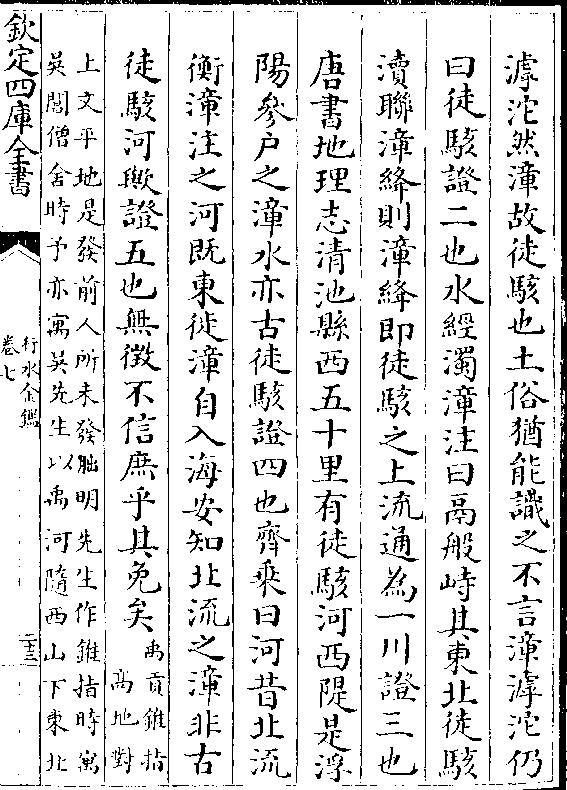 滹沱然漳故徒駭也土俗猶能識之不言漳滹沱仍
曰徒駭證二也水經濁漳注曰鬲般峙其東北徒駭
瀆聯漳絳則漳絳即徒駭之上流通為一川證三也
唐書地理志清池縣西五十里有徒駭河西隄是浮
陽參户之漳水亦古徒駭證四也齊乗曰河昔北流
衡漳注之河既東徙漳自入海安知北流之漳非古
徒駭河歟證五也無徴不信庶乎其免矣
禹貢錐指
髙地對
上文平地是發前人所未發朏明先生作錐指時寓
吳閶僧舍時予亦寓吳先生以禹河隨西山下東北
欽定四庫全書
行水金鑑
卷七
二十三